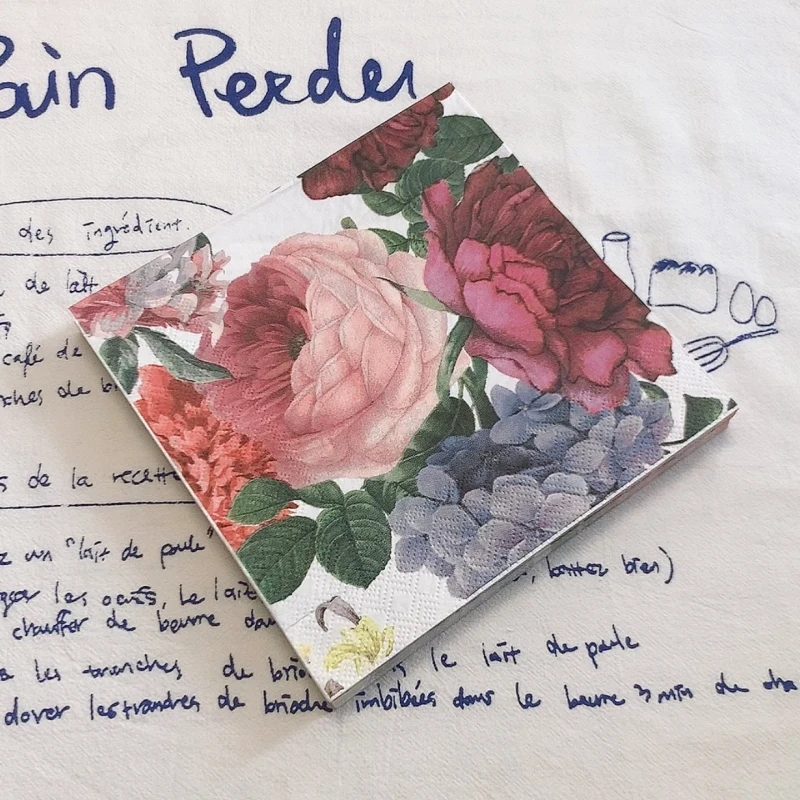 ain Perdu
des ingrédient.
de lait
café de
ches de b
s de la recette
z un "lait de poule"
les oeufs, le lait , battez bien)
chauffer de beurre dan
les tranches de brio s le lait de poule
dorer les trandres de brioche imbibées dans le beurre 3 min de cha